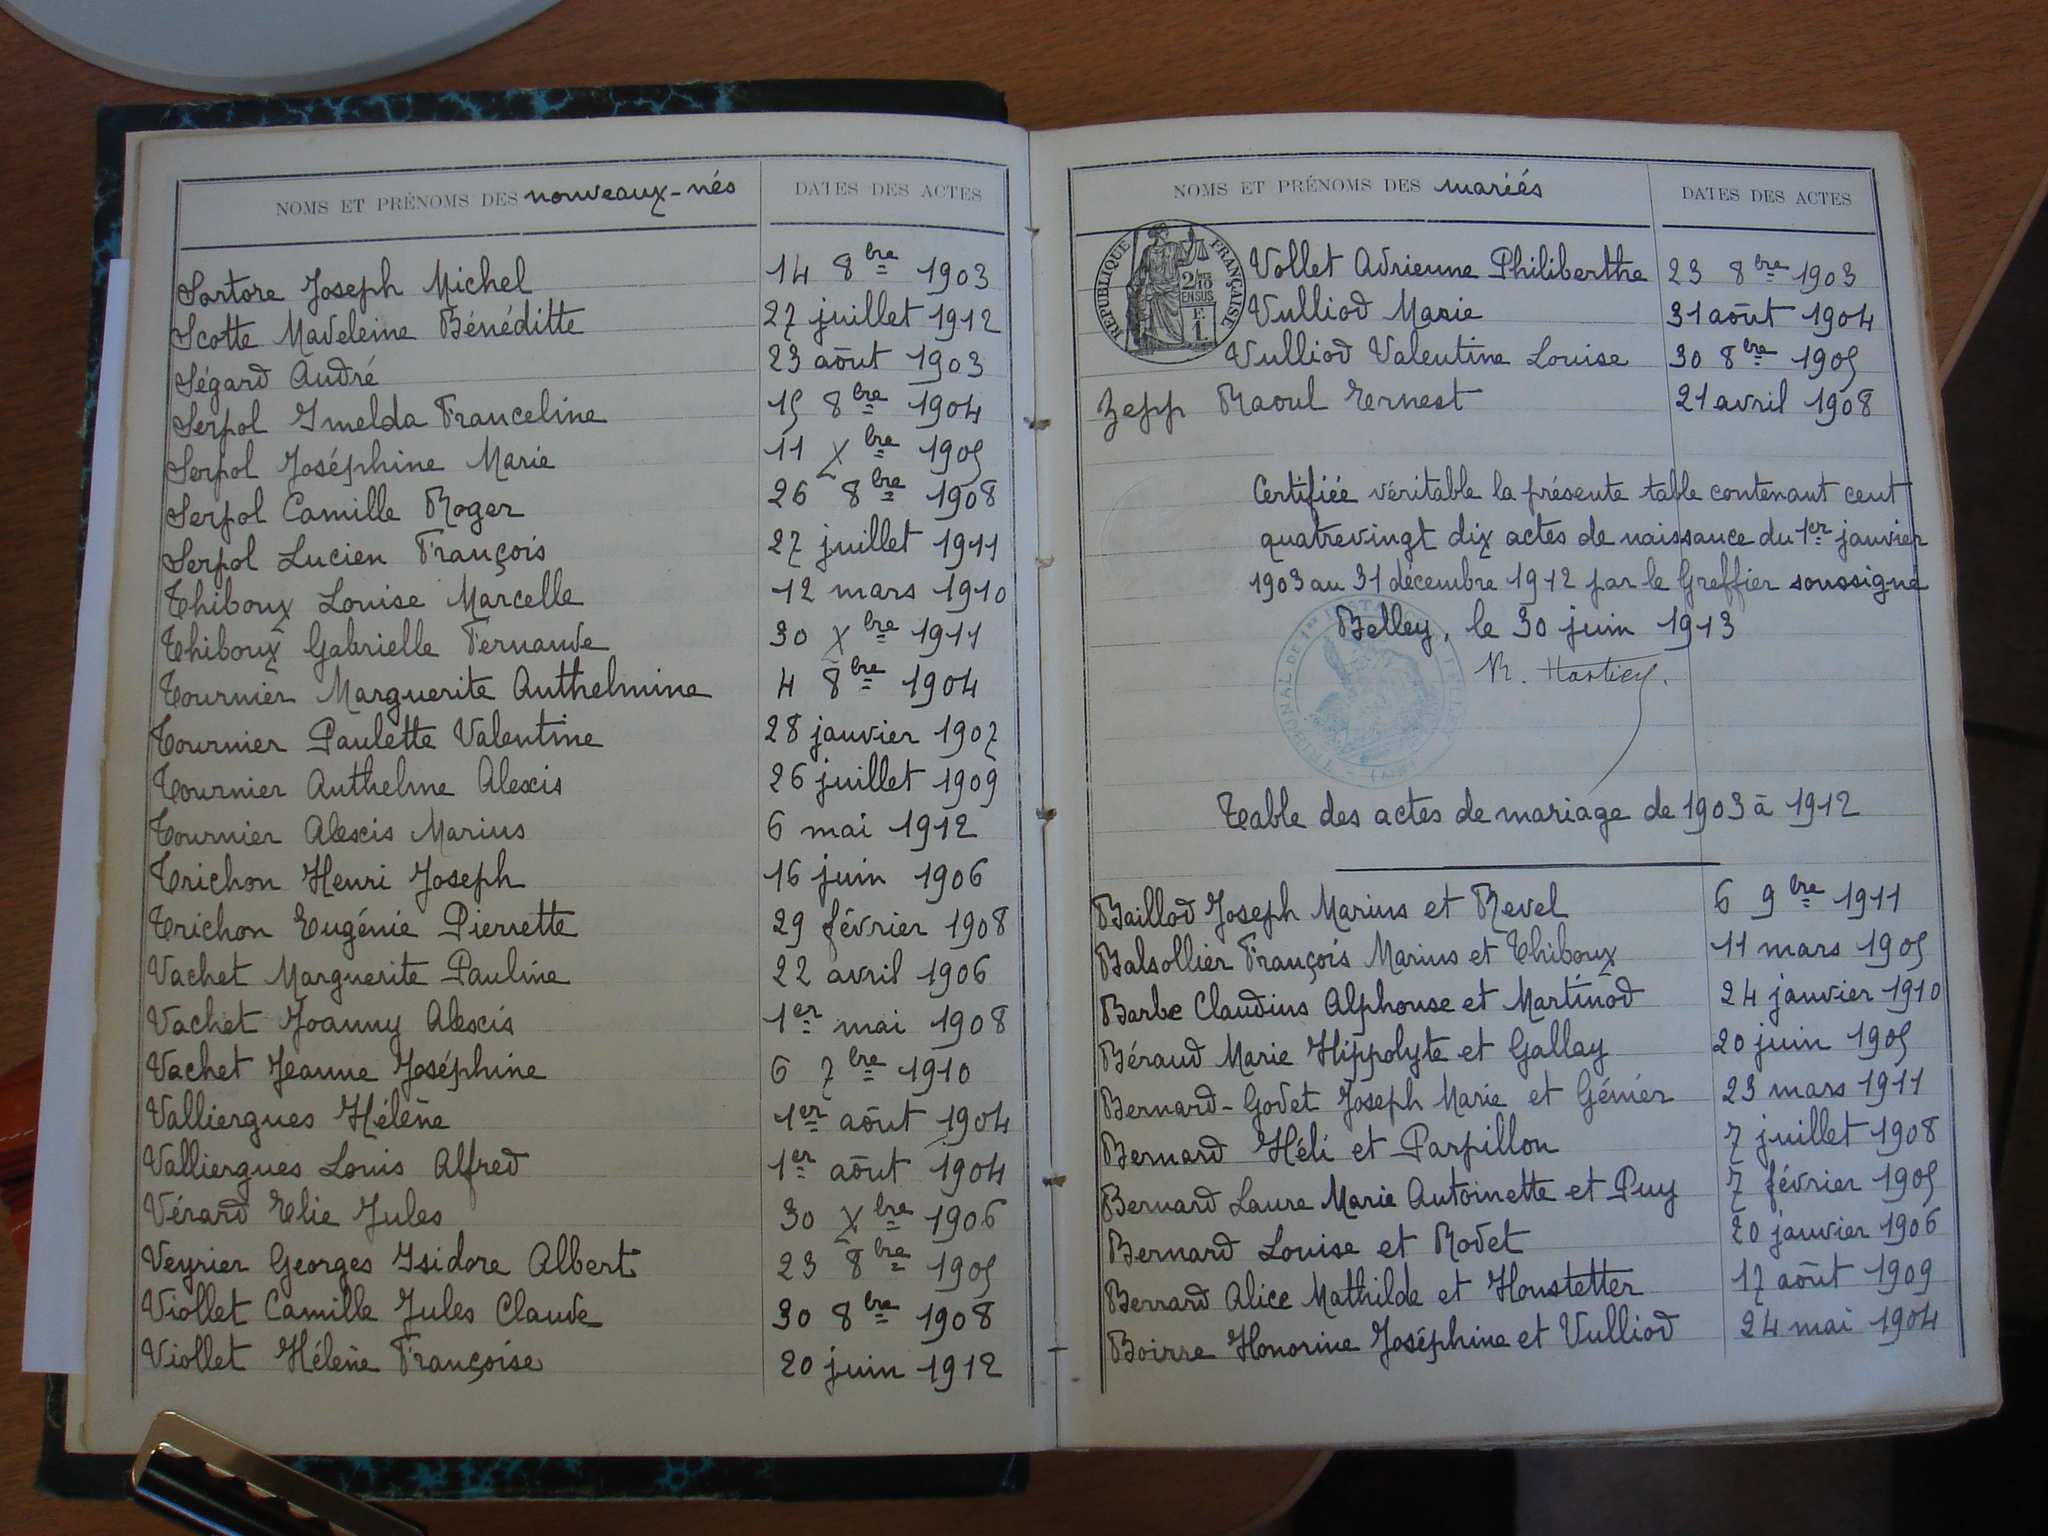 NOMS ET PRÉNOMS DES nouveaux-nés DATES DES ACTES
Sartore Joseph Michel 14 8bre 1903
Scotte Madeleine Bénéditte 27 juillet 1912
Ségard André 23 août 1903
Serpol Imelda Franceline 15 8bre 1904
Serpol Joséphine Marie 11 Xbre 1905
Serpol Camille Roger 26 8bre 1908
Serpol Lucien François 27 juillet 1911
Thiboux Louise Marcelle 12 mars 1910
Thiboux Gabrielle Fernande 30 Xbre 1911
Tournier Marguerite Anthelmine 4 8bre 1904
Tournier Paulette Valentine 28 janvier 1907
Tournier Anthelme Alexis 26 juillet 1909
Tournier Alexis Marius 6 mai 1912
Trichon Henri Joseph 16 juin 1906
Trichon Eugénie Pierrette 29 février 1908
Vachet Marguerite Pauline 22 avril 1906
Vachet Joanny Alexis 1er mai 1908
Vachet Jeanne Joséphine 6 7bre 1910
Valliergues Hélène 1er août 1904
Valliergues Louis Alfred 1er août 1904
Vérard Elie Jules 30 Xbre 1906
Veyrier Georges Isidore Albert 23 8bre 1905
Viollet Camille Jules Claude 30 8bre 1908
Viollet Hélène Françoise 20 juin 1912
NOMS ET PRÉNOMS DES mariés DATES DES ACTES
RÉPUBLIQUE FRANÇAISE
2/10 EN SUS
F. 1.
Vollet Adrienne Philiberthe 23 8bre 1903
Vulliod Marie 31 août 1904
Vulliod Valentine Louise 30 8bre 1905
Zepp Raoul Ernest 21 avril 1908
Certifiée véritable la présente table contenant cent
quatrevingt dix actes de naissance du 1er janvier
1903 au 31 décembre 1912 par le Greffier soussigné
Belley, le 30 juin 1913
TRIBUNAL DE 1re INSTANCE
Table des actes de mariage de 1903 à 1912
Baillod Joseph Marius et Revel 6 9bre 1911
Balsollier François Marius et Thiboux 11 mars 1905
Barbe Claudius Alphonse et Martinod 24 janvier 1910
Béraud Marie Hippolyte et Gallay 20 juin 1905
Bernard-Godet Joseph Marie et Génier 23 mars 1911
Bernard Héli et Parpillon 7 juillet 1908
Bernard Laure Marie Antoinette et Puy 7 février 1905
Bernard Louise et Rodet 20 janvier 1906
Berrard Alice Mathilde et Honstetter 17 août 1909
Boirre Honorine Joséphine et Vulliod 24 mai 1904